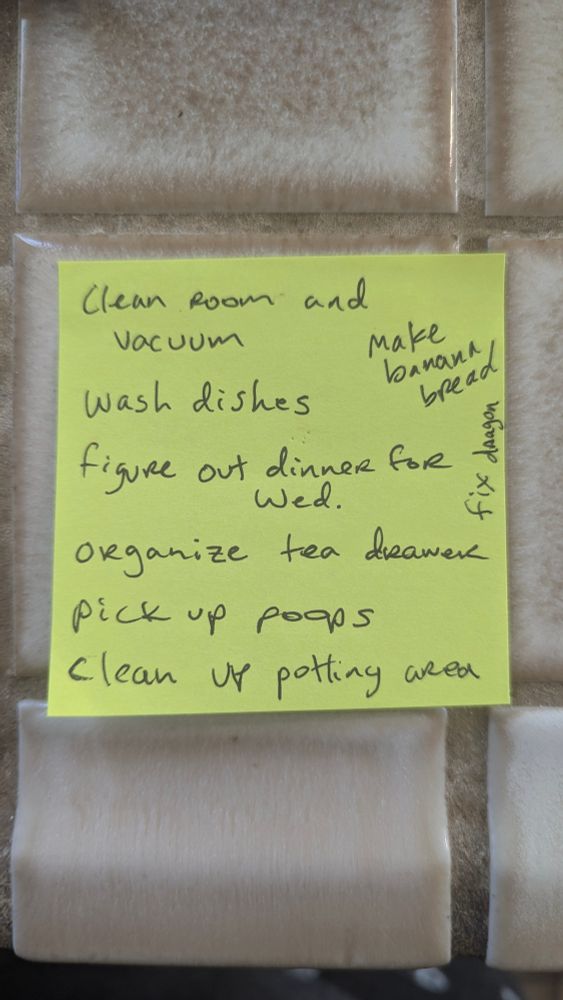 Clean room and
vacuum
Make
banana
bread
wash dishes
figure out dinner for
Wed.
fix dragon
organize tea drawer
pick up poops
Clean up potting area